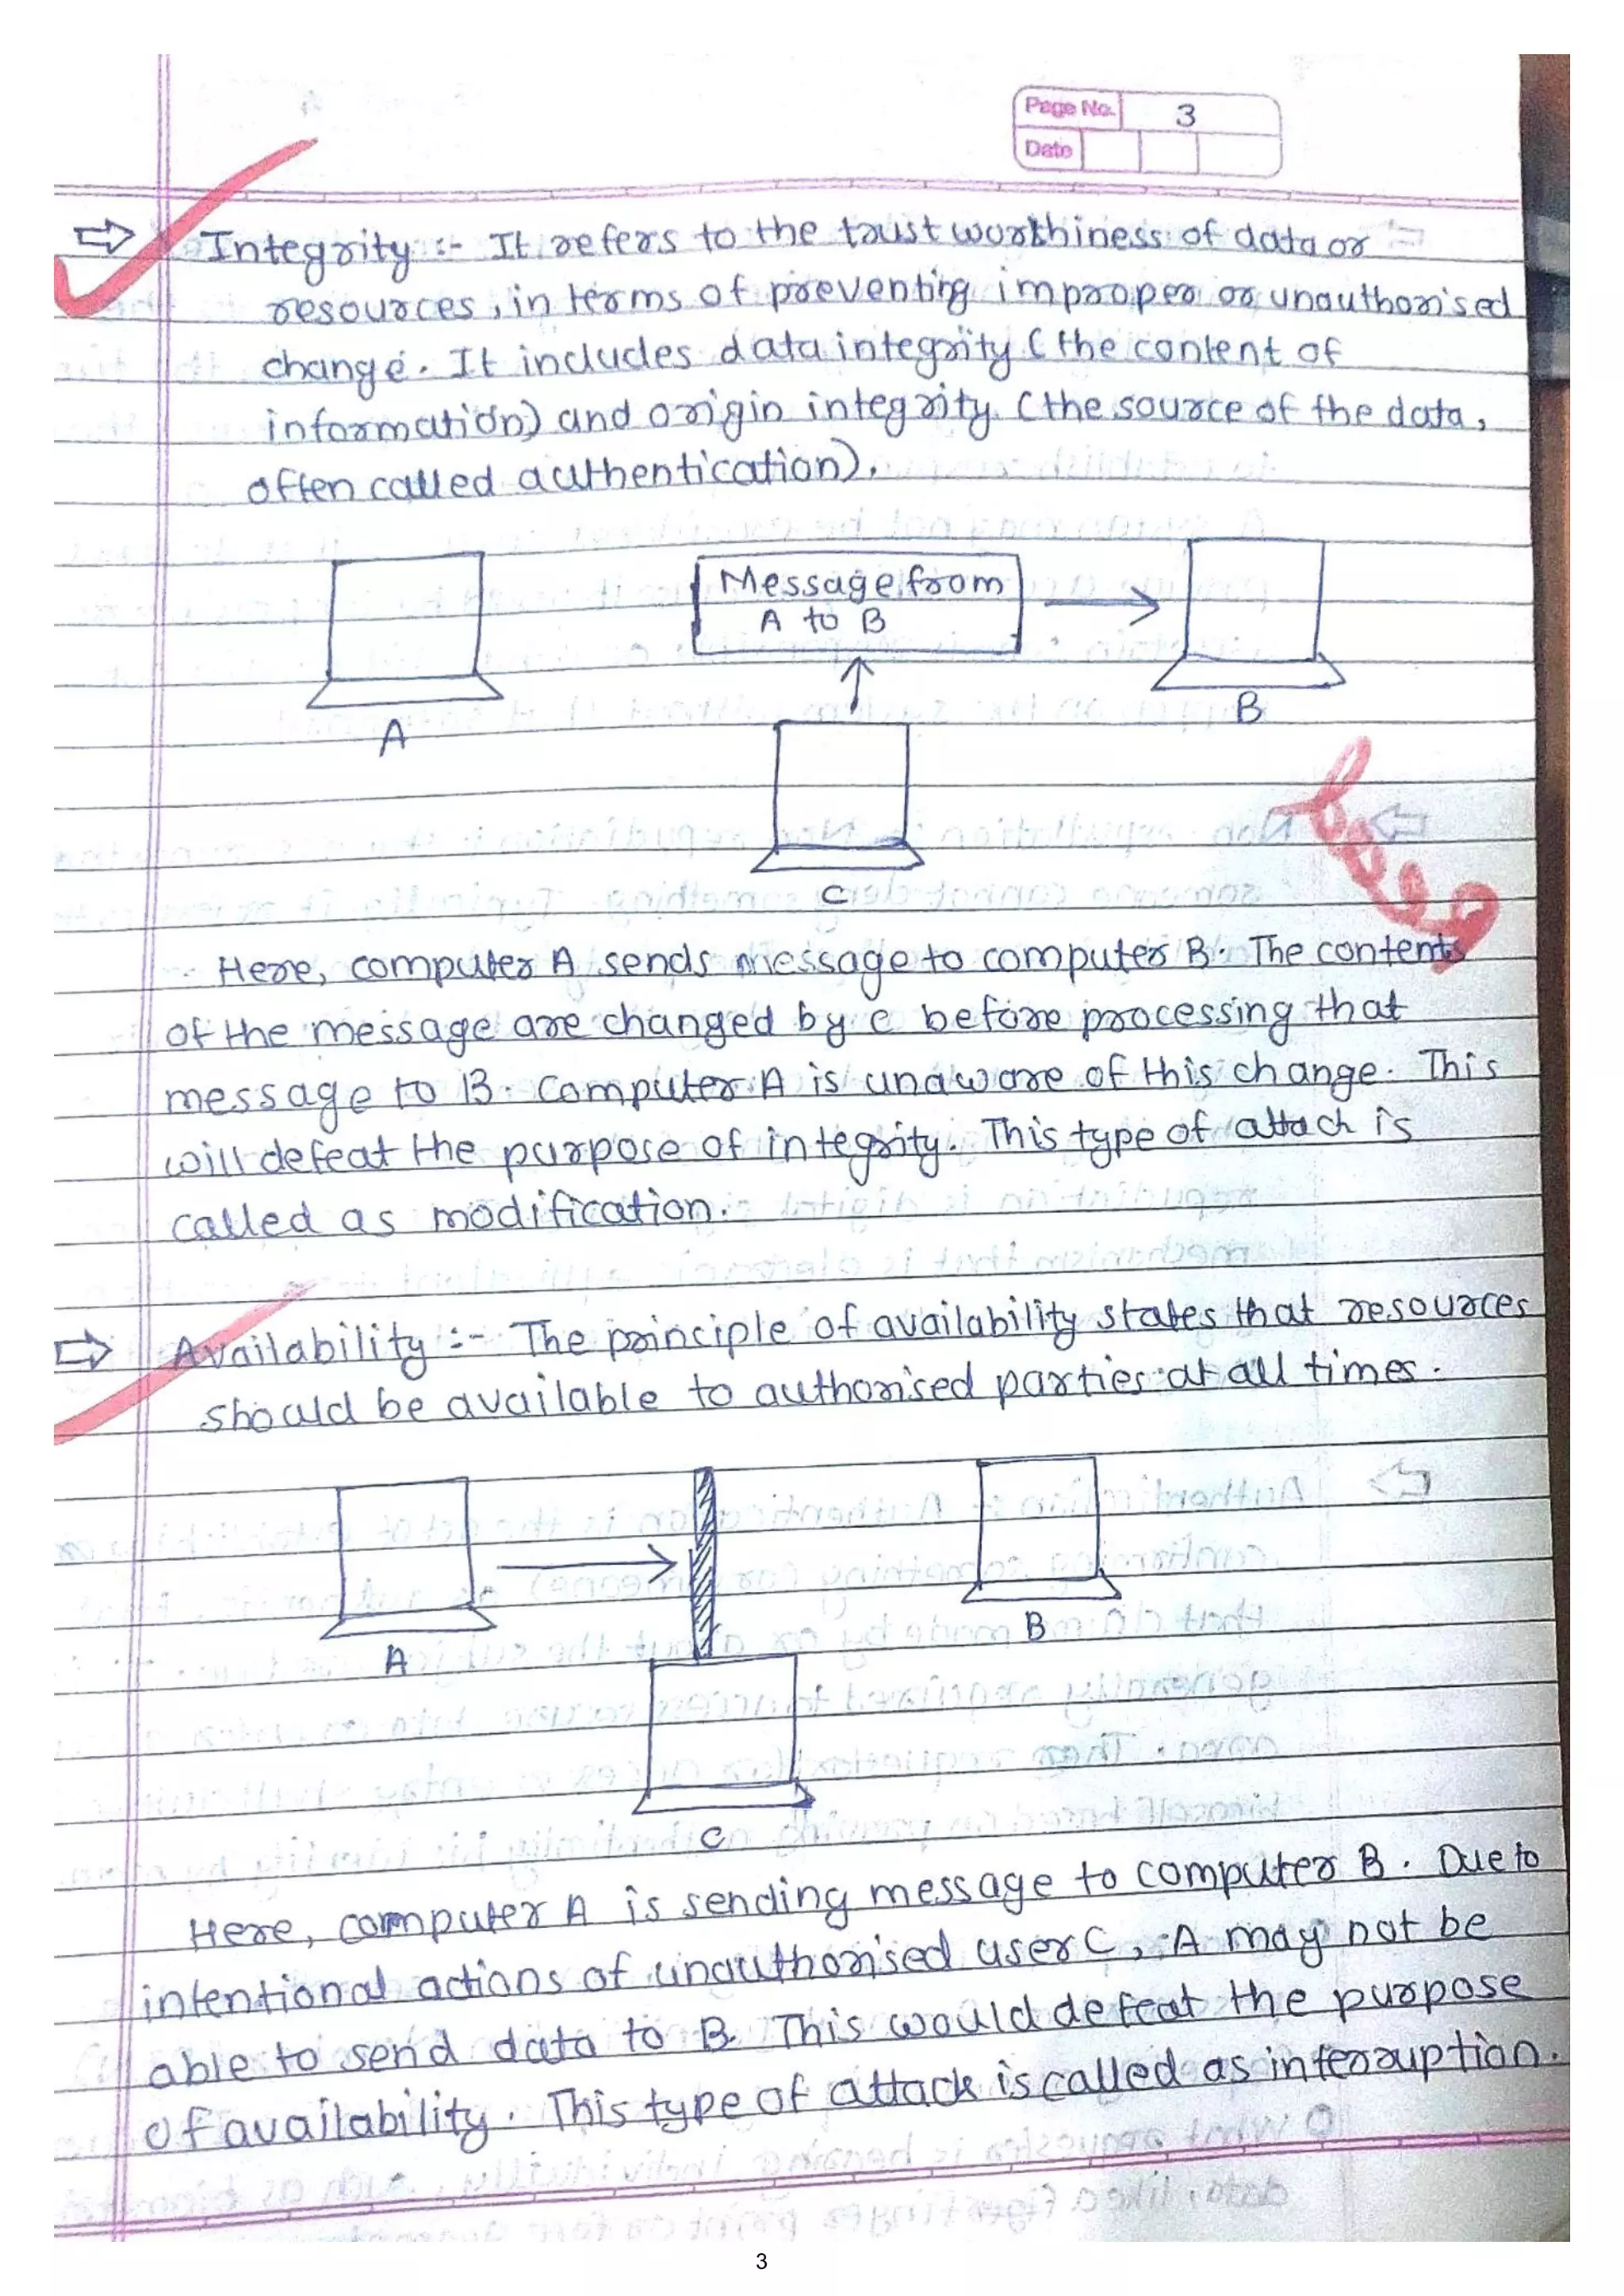 Page No. 3
Date
⇒ Integrity :- It refers to the trustworthiness of data or
resources, in terms of preventing improper or unauthorised
change. It includes data integrity (the content of
information) and origin integrity (the source of the data,
often called authentication).
Message from
A to B
A
B
C
Here, computer A sends message to computer B. The contents
of the message are changed by C before processing that
message to B. Computer A is unaware of this change. This
will defeat the purpose of integrity. This type of attach is
called as modification.
⇒ Availability :- The principle of availability states that resources
should be available to authorised parties at all times.
A
B
C
Here, computer A is sending message to computer B. Due to
intentional actions of unauthorised user C, A may not be
able to send data to B. This would defeat the purpose
of availability. This type of attack is called as interruption.
3